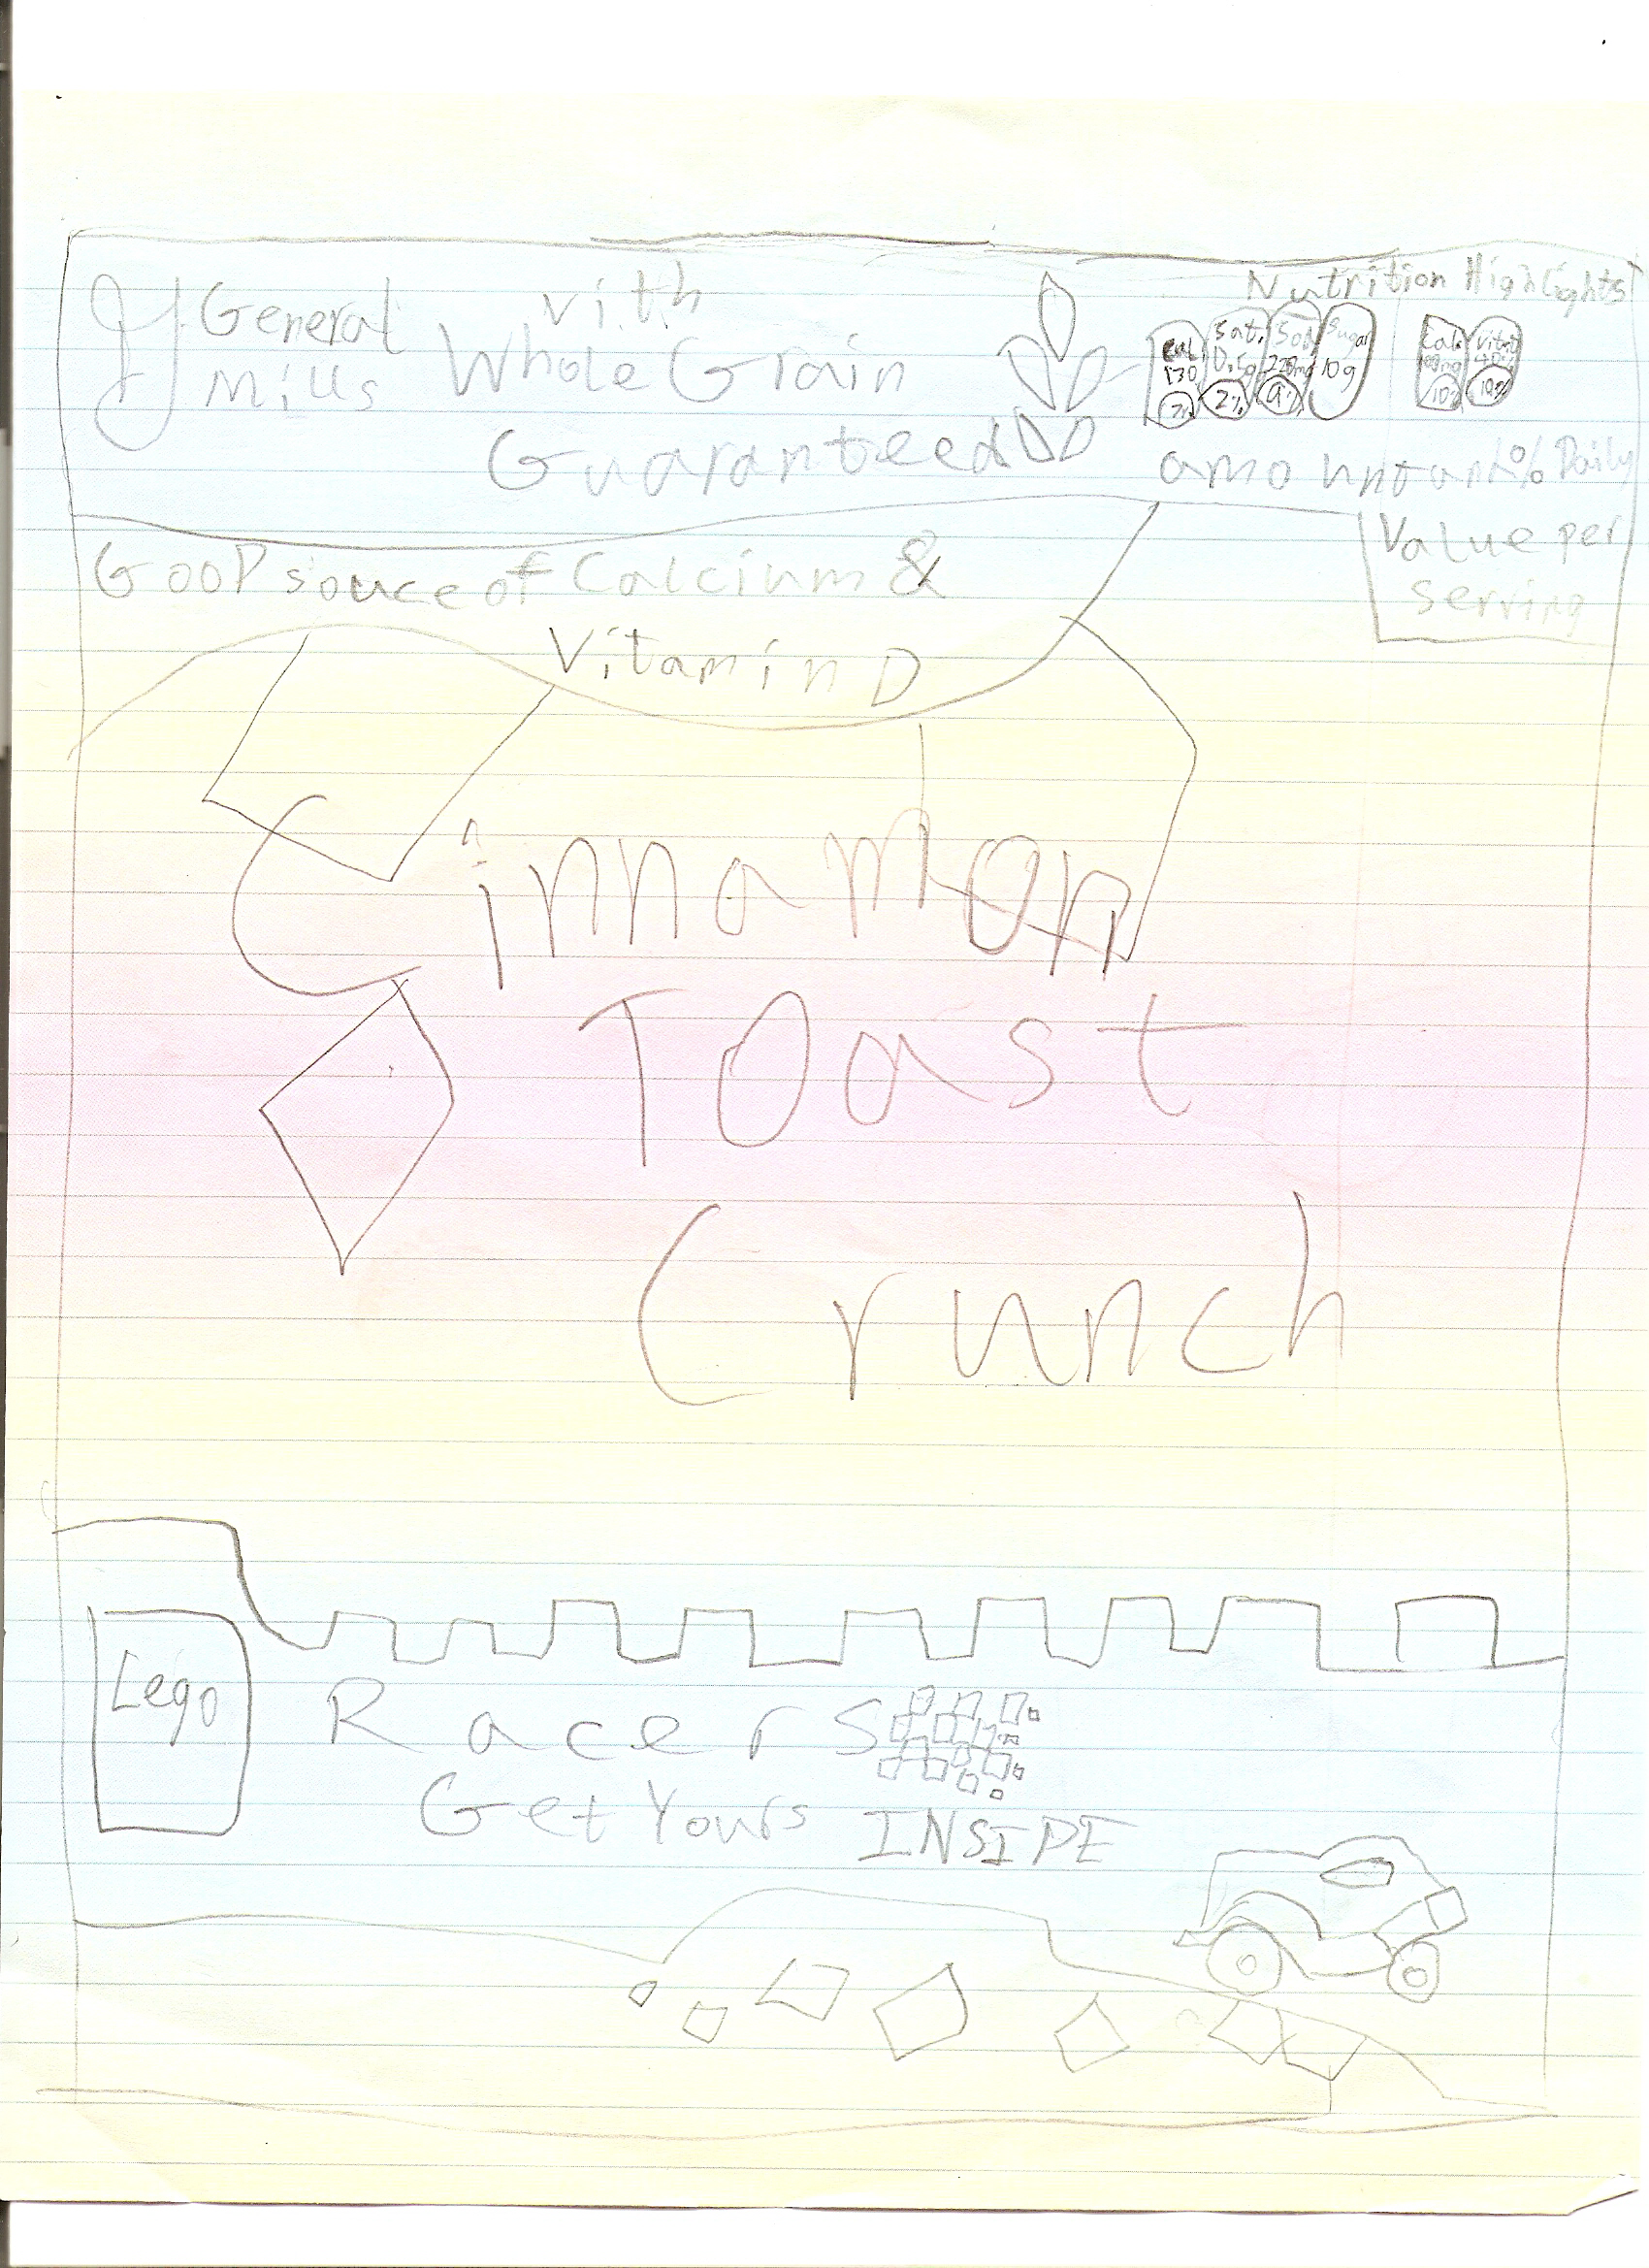 General Mills
With
Whole Grain
Guaranteed
Nutrition Highlights
Cal. 130 7%
Sat. 0.5g 2%
Sod 220mg 9%
Sugar 10g
Cal. 100mg 10%
Vit D 10%
amount and % Daily
Value per
serving
GooD souce of Calcium &
Vitamin D
Cinnamon
TOast
Crunch
Lego
Racers
Get Yours INSIDE